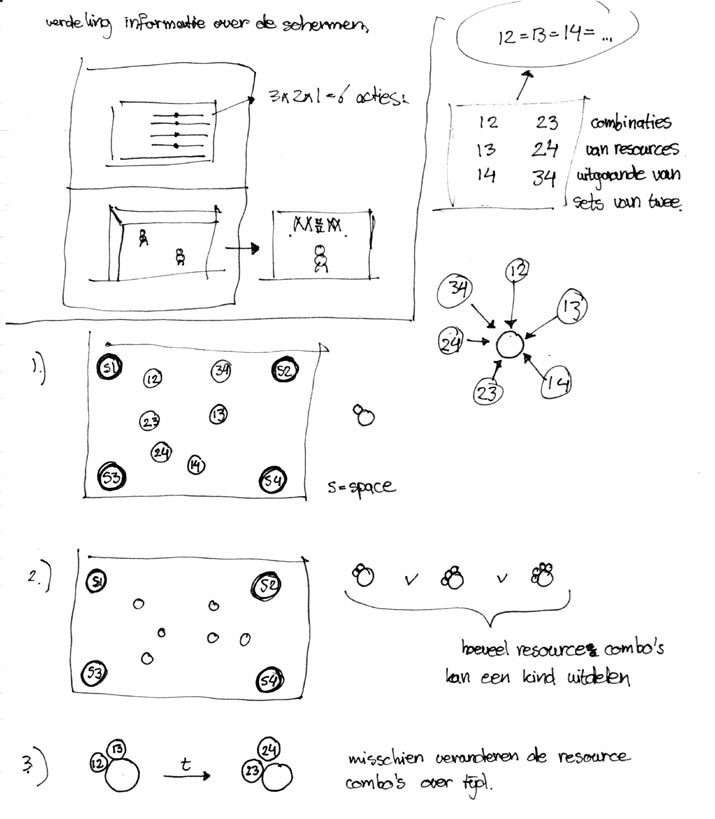 verdeling informatie over de schermen
3x2x1=6 acties:
12=13=14=...
12 23 combinaties
13 24 van resources
14 34 uitgaande van
sets van twee.
12
34
13
24
23
14
1.)
S1 12 34 S2
23 13
24 14
S3 S4
s=space
2.)
S1 S2
v v
S3 S4
hoeveel resources combo's
kan een kind uitdelen
3.)
13 24
12 t 23
misschien veranderen de resource
combo's over tijd.